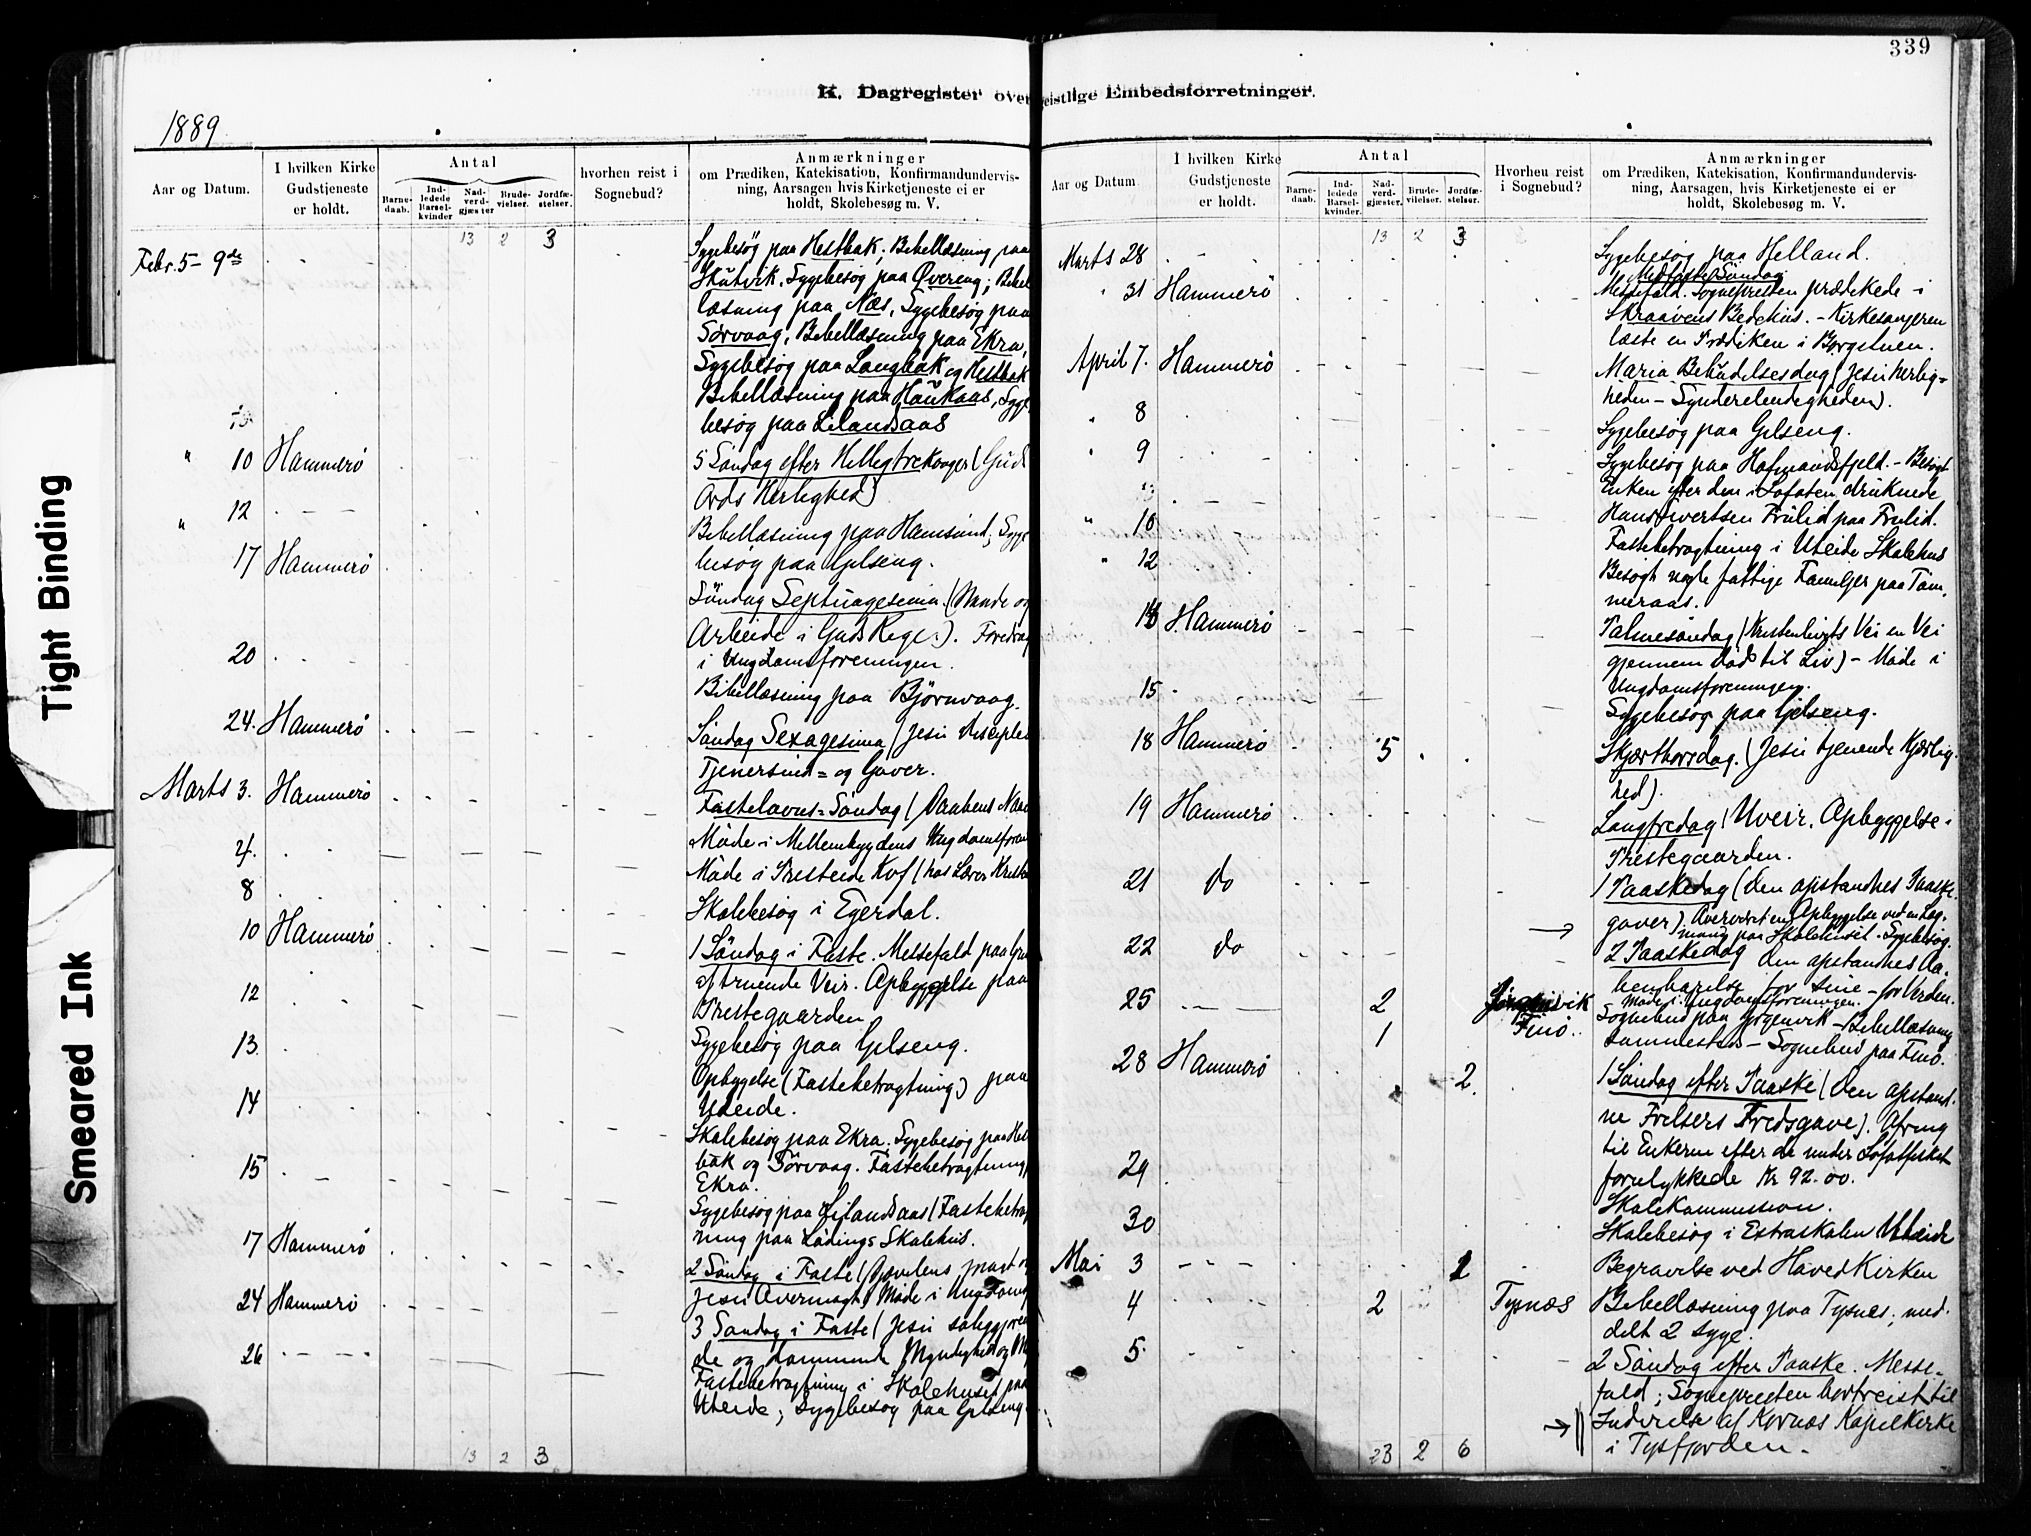 339
K. Dagregister over
eistlige Embedsforretninger.
1889
Aar og Datum.
I hvilken Kirke
Gudstjeneste
er holdt.
Antal
Barne-
daab.
Ind-
ledede
Barsel-
kvinder
Nad-
verd-
gjæster
Brude-
vielser.
Jordfæ-
stelser.
hvorhen reist i
Sognebud?
Anmærkninger
om Prædiken, Katekisation, Konfirmandundervis-
ning, Aarsagen hvis Kirketjeneste ei er
holdt, Skolebesøg m. V.
13 2 3
Febr. 5 - 9de Sygebesøg paa Hestbak; Bibellæsning paa
Skutvik. Sygebesøg paa Øvereng; Bibel
læsning paa Næs, Sygebesøg paa
Sørvaag, Bibellæsning paa Ekra,
Sygebesøg paa Langbak og Hestbak
Bibellæsning paa Haukaas, Syge
besøg paa Lilandsaas
" 10 Hammerö 5 Søndag efter Helligtrekonger (Guds
Ords Herlighed)
" 12 Bibellæsning paa Hamsund; Syge
besøg paa Gelseng.
17 Hammerö Søndag Septuagesima. (Naade og
Arbeide i Guds Rige.). Foredrag
i Ungdomsforeningen.
20 Bibellæsning paa Björnvaag.
24. Hammerö Søndag Sexagesima (Jesu Disciple
Tjenersind = og Gaver.
Marts 3. Hammerö Fastelavns-Søndag (Daabens Naa
4. Møde i Mellembygdens Ungdomsforen
Møde i Presteide Kvf (hos Lærer
8 Skolebesøg i Egerdal.
10 Hammerö 1 Søndag i Faste. Messefald paa Gru
af truende Veir. Opbyggelse paa
12 Prestegaarden
13. Sygebesøg paa Gelseng.
Opbygelse (Fastebetragtning) paa
14 Uteide.
Skolebesøg paa Ekra. Sygebesøg paa Hes
15 bak og Sørvaag. Fastebetragtning
Ekra.
Sygebesøg paa Lilandsaas (Fastebetrag
17 Hammerö ning paa Lødings Skolehus.
2 Søndag i Faste (Djævelens magt og
24 Hammerö Jesu Overmagt) Møde i Ungdoms
3 Søndag i Faste (Jesu
26 de og dømmende Myndighed og
Fastebetragtning i Skolehuset paa
Uteide; Sygebesøg paa Gelseng
13 2 3
Aar og Datum
I hvilken Kirke
Gudstjeneste
er holdt.
Antal
Barne-
daab.
Ind-
ledede
Barsel-
kvinder.
Nad-
verd-
gjæster.
Brude-
vielser.
Jordfæ-
stelser.
Hvorhen reist
i Sognebud?
Anmærkninger
om Prædiken, Katekisation, Konfirmandundervis-
ning, Aarsagen, hvis Kirketjeneste ei er
holdt, Skolebesøg m. V.
13 2 3
Marts 28 Sygebesøg paa Helland.
Midfaste Søndag
" 31 Hammerö Messefald. Sognepresten prædikede i
Skraavens Bedehus. - Kirkesangeren
læste en Prædiken i Borgstuen.
April 7. Hammerö Maria Bebudelsesdag (Jesu Herlig-
heden - Synderelendigheden).
" 8 Sygebesøg paa Gelseng.
" 9 Sygebesøg paa Hofmandsfjeld. - Besøgt
Enken efter den i Lofoten druknede
" 10 Hans Evertsen Frulid paa Frulid.
Fastebetragtning i Uteide Skolehus
" 12 Besøgt nogle fattige Familjer paa Töm-
meraas.
14 Hammerö Palmesøndag (Kristenlivets Vei en Vei
gjennem Død til Liv) - Møde i
15 Ungdomsforeningen.
Sygebesøg paa Gelseng.
18 Hammerö 5 Skjærthorsdag. (Jesu tjenende Kjærlig-
hed).
19 Hammerö Langfredag (Uveir. Opbyggelse i
Prestegaarden.
21 do 1 Paaskedag (den opstandnes Paaske
gaver) Overværet en Opbyggelse ved en Læg-
mand paa Skolehuset. Sygebesøg.
22 do 2 Paaskedag den opstandnes Aa-
benbarelse for sine - for Verden.
Møde i Ungdomsforeningen.
25 2 Jørgenvik Sognebud paa Jørgenvik - Bibellæsning
1 Finö. sammesteds - Sognebud paa Finö.
28 Hammerö 2 1 Søndag efter Paaske (Den opstand-
ne Frelsers Fredsgave). Ofring
til Enkerne efter de under Lofotfisket
29 forulykkede Kr 92.00.
Skolekommission.
30 Skolebesøg i Extraskolen Uteide
Mai 3 1 Begravelse ved Hovedkirken
4 2 Tysnæs Bibellæsning paa Tysnes; med-
delt 2 syge.
5. 2 Søndag efter Paaske. Messe-
fald; Sognepresten bortreist til
Indvielse af Korsnæs Kapelkirke
i Tysfjorden.
23 2 6
Tight Binding
Smeared Ink